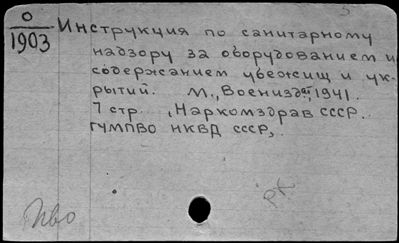 О
1903
Инструкция по санитарному
надзору за оборудованием и
содержанием убежищ и ук-
рытий. М., Воениздат, 1941.
7 стр. (Наркомздрав СССР.
ГУМПВО НКВД СССР).
Пво